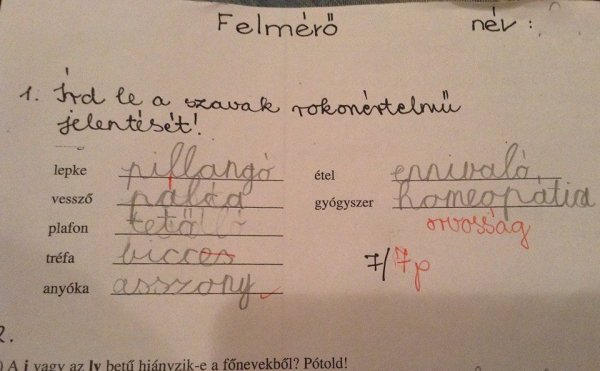 Felmérő név:
1. Írd le a szavak rokonértelmű
jelentését!
lepke pillangó
vessző pálca
plafon tető
tréfa vicces
anyóka asszony
étel ennivaló
gyógyszer homeopátia
orvosság
7/7p
2.
A i vagy az ly betű hiányzik-e a főnevekből? Pótold!